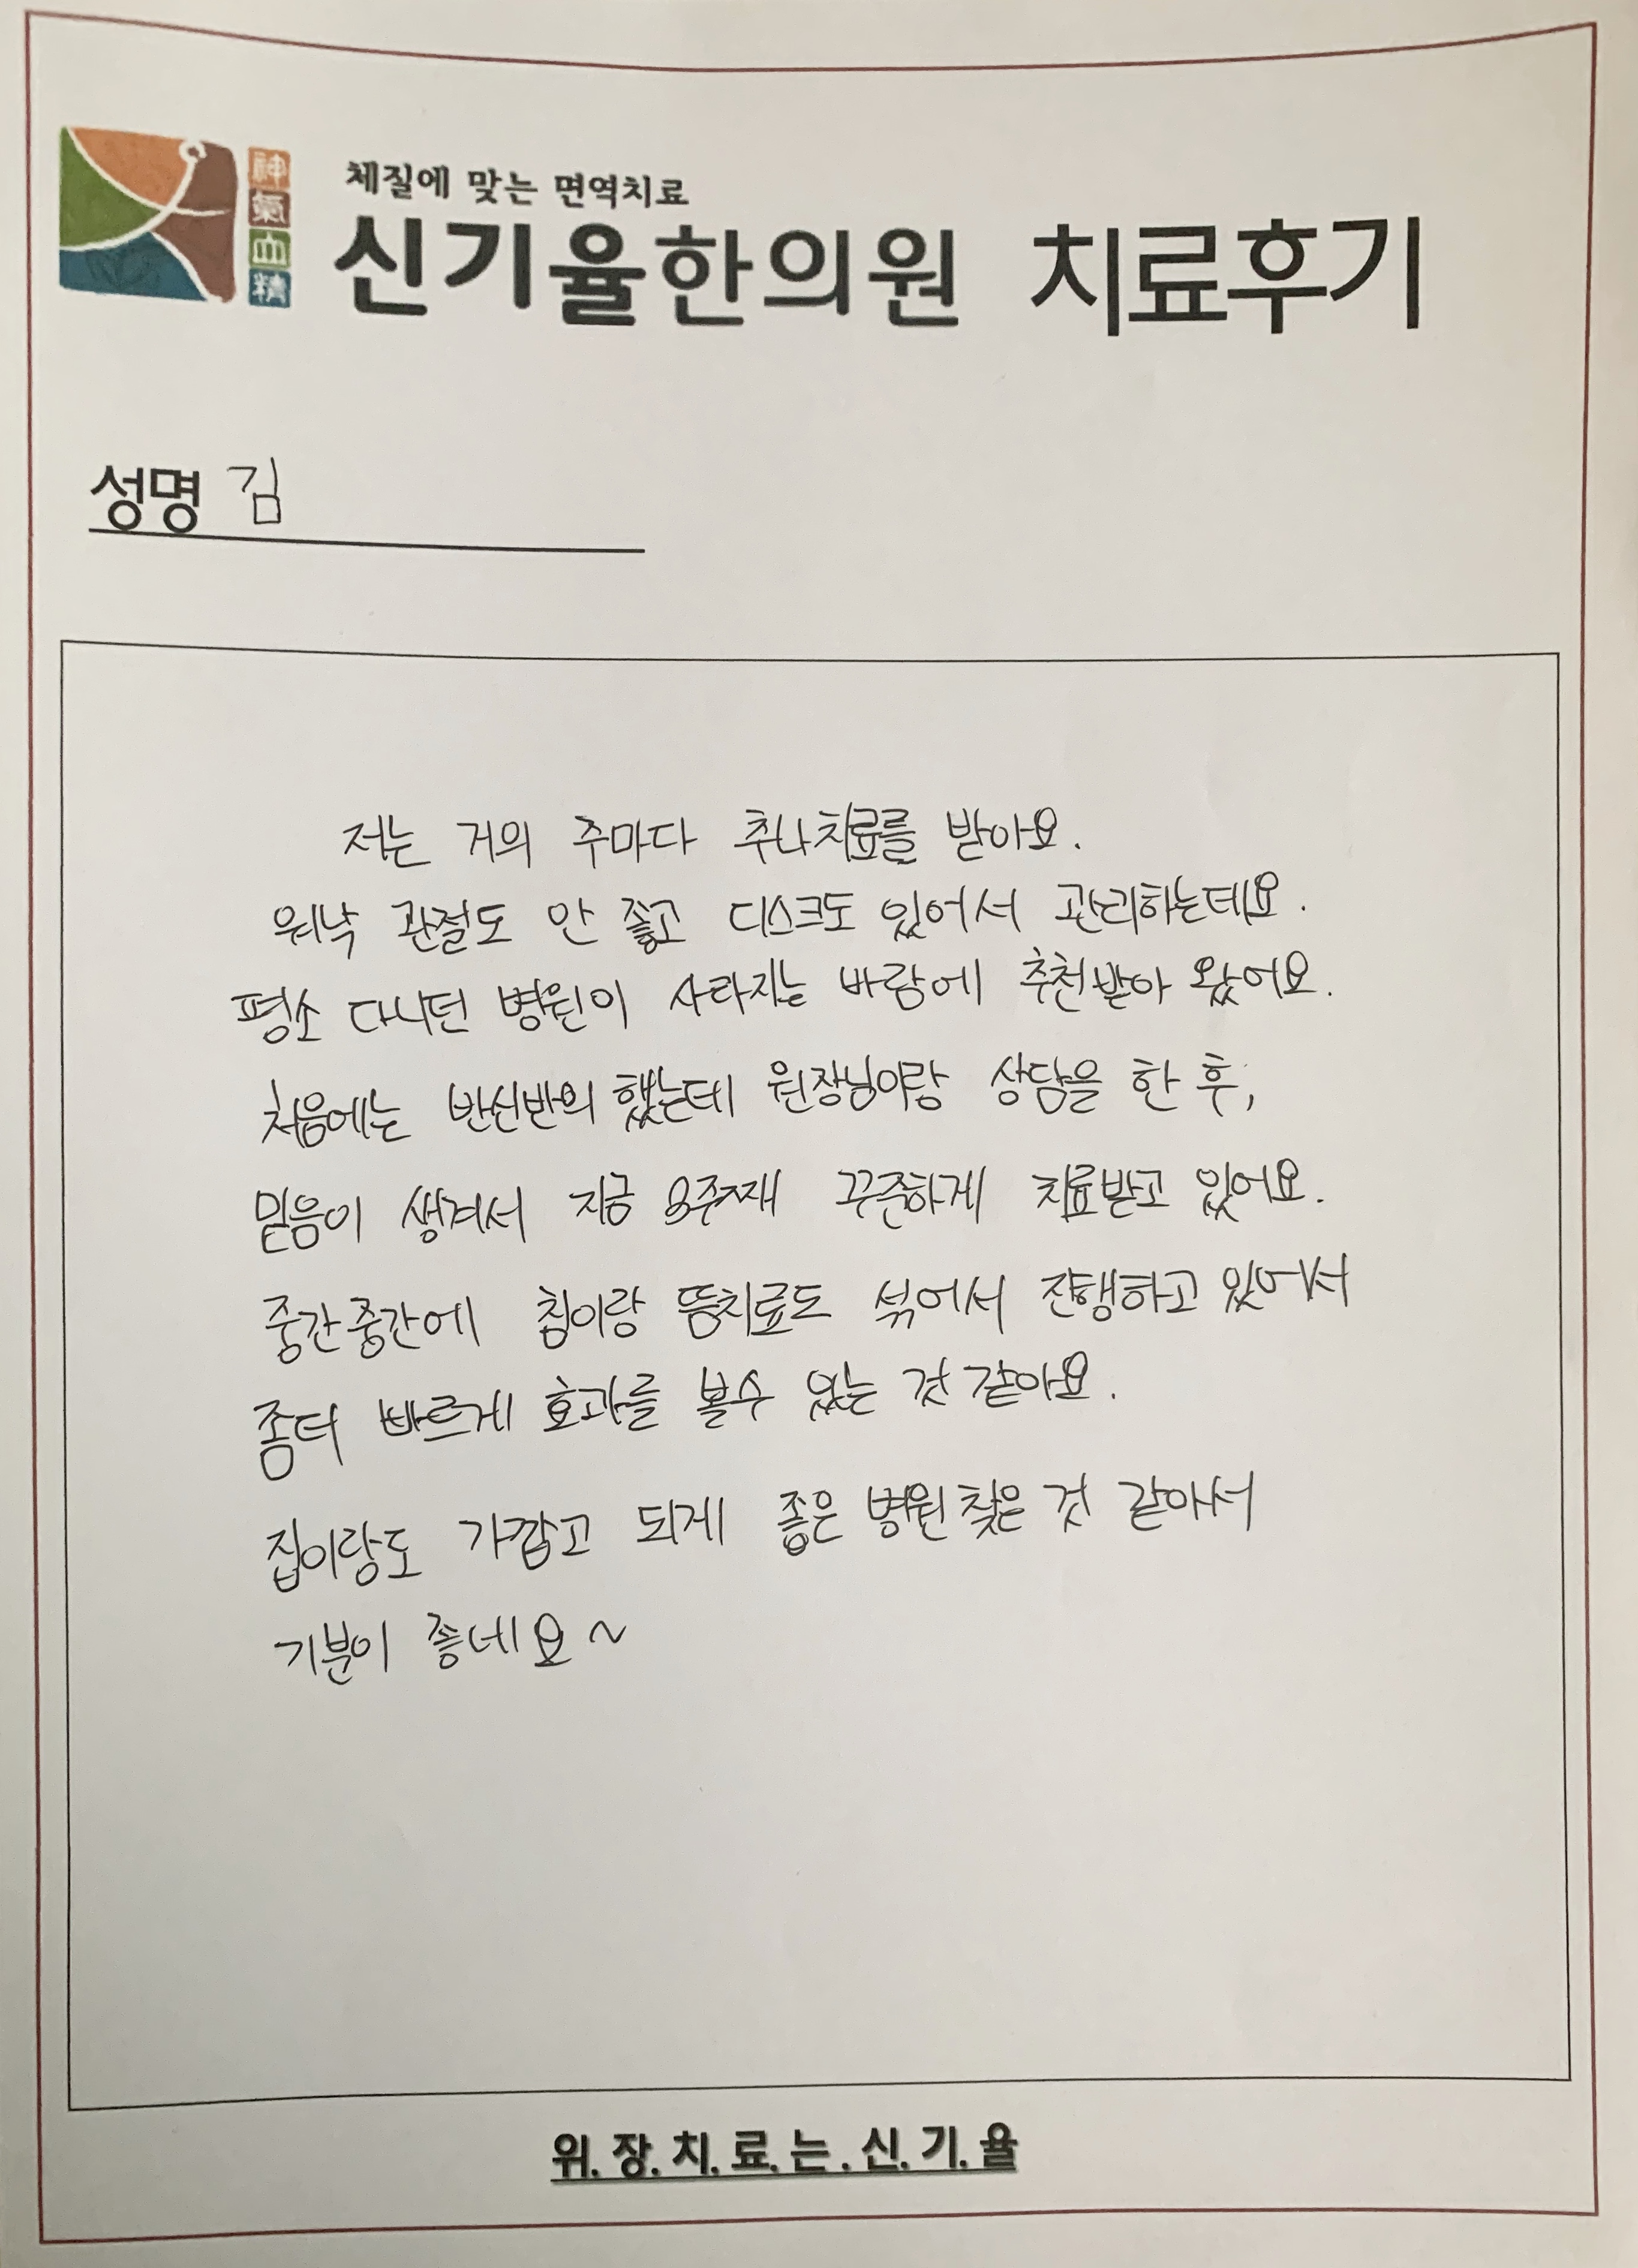 神氣血精
체질에 맞는 면역치료
신기율한의원 치료후기
성명 김
저는 거의 주마다 추나치료를 받아요.
워낙 관절도 안 좋고 디스크도 있어서 관리하는데요.
평소 다니던 병원이 사라지는 바람에 추천받아 왔어요.
처음에는 반신반의 했는데 원장님이랑 상담을 한 후,
믿음이 생겨서 지금 8주째 꾸준하게 치료받고 있어요.
중간중간에 침이랑 뜸치료도 섞어서 진행하고 있어서
좀더 빠르게 효과를 볼수 있는 것 같아요.
집이랑도 가깝고 되게 좋은 병원 찾은 것 같아서
기분이 좋네요~
위.장.치.료.는.신.기.율